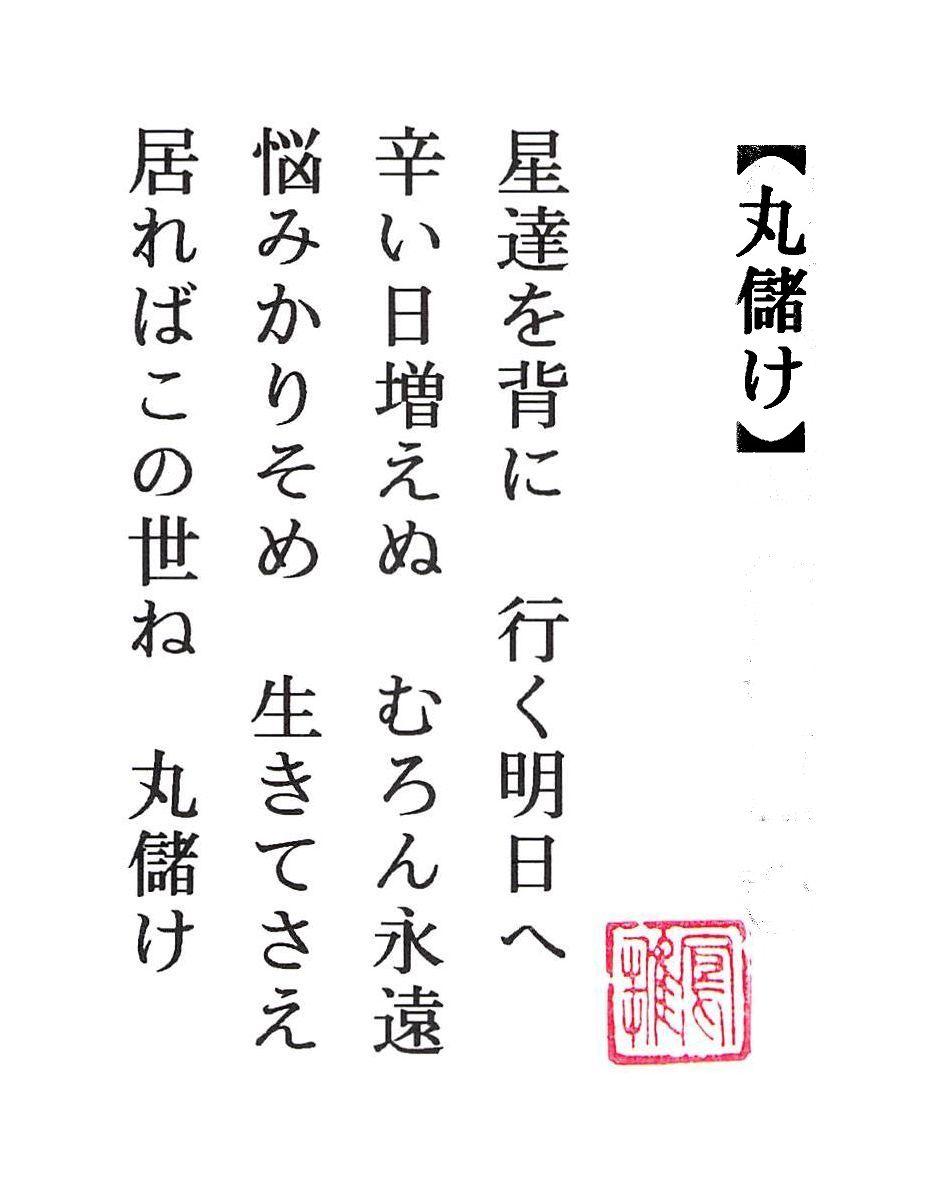 【丸儲け】
星達を背に　行く明日へ
辛い日増えぬ　むろん永遠
悩みかりそめ　生きてさえ
居ればこの世ね　丸儲け